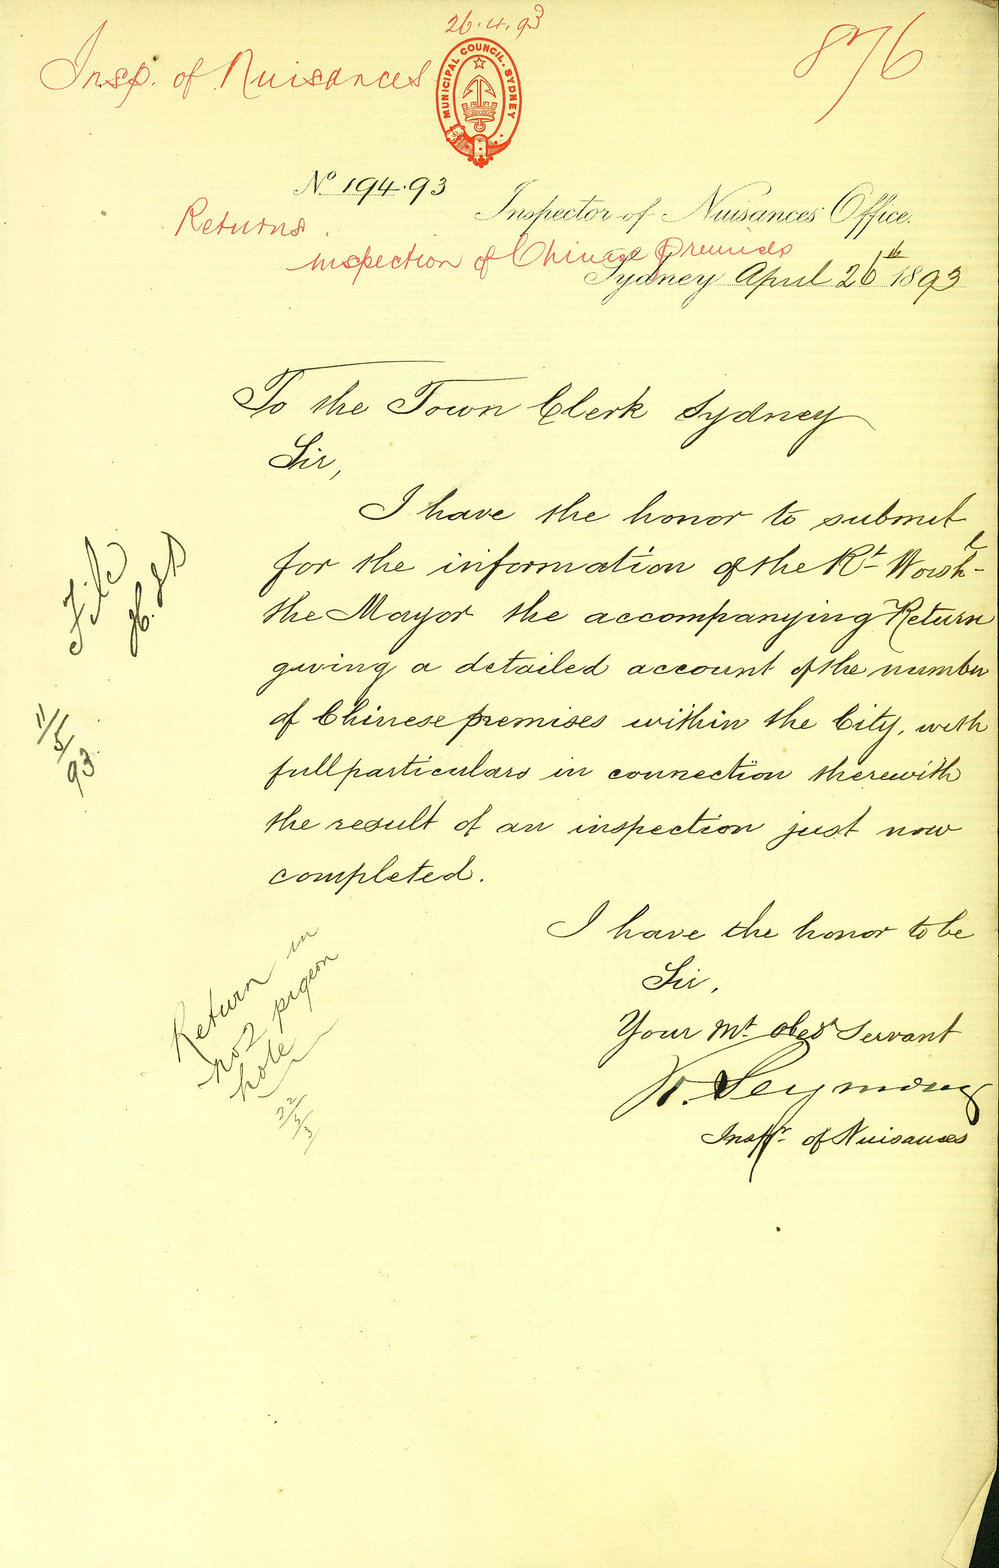 26.4.93
Insp. of Nuisances
876
MUNICIPAL COUNCIL. SYDNEY
No 194.93
Inspector of Nuisances Office.
Returns.
inspection of Chinese Premises
Sydney April 26th 1893
To the Town Clerk Sydney
Sir,
I have the honor to submit
for the information of the Rt Worsh-l
the Mayor the accompanying Return
giving a detailed account of the number
of Chinese premises within the City, with
full particulars in connection therewith
the result of an inspection just now
completed.
I have the honor to be
Sir,
Your Mt. obedt Servant
Seymour
Inspr. of Nuisances
File
11/5/93.
Return in
no 2 pigeon
hole